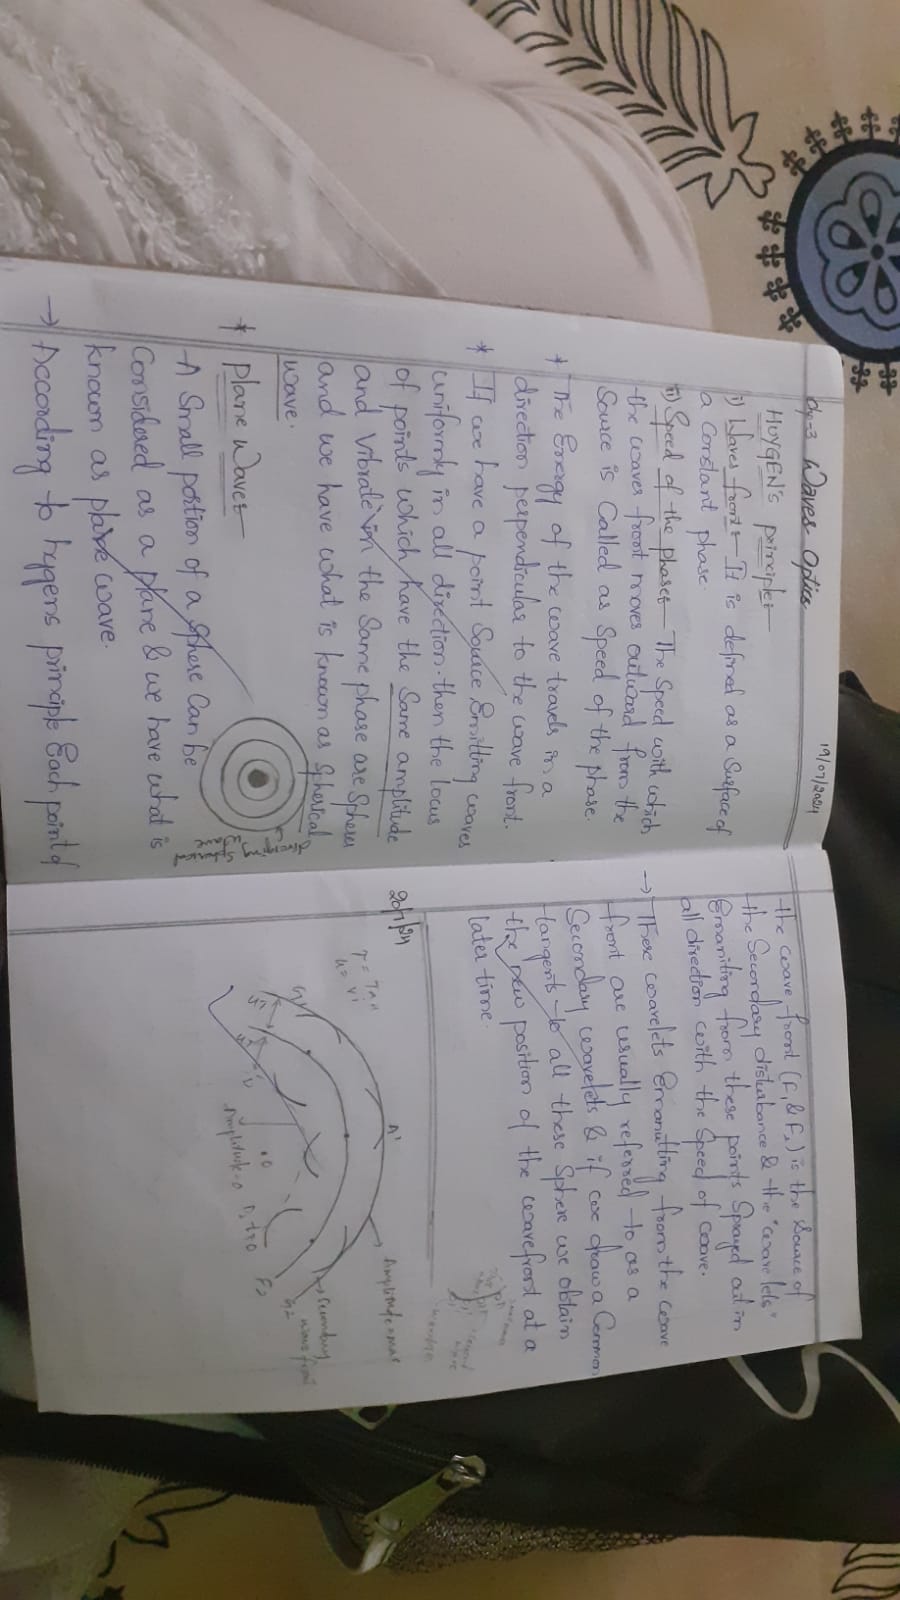 Ch-3 Waves Optics
19/07/2024
HUYGEN'S principle:-
i) Waves front:- It is defined as a Surface of
a Constant phase.
ii) Speed of the phase:- The Speed with which
the waves front moves outward from the
Source is Called as Speed of the phase.
* The Energy of the wave travels in a
direction perpendicular to the wave front.
* If we have a point Source Emitting waves
uniformly in all direction. then the locus
of points which have the Same amplitude
and Vibrate in the Same phase are Spheres
and we have what is known as Spherical
wave.
diverging Spherical
wave
* Plane Wave:-
A Small portion of a Sphere Can be
Considered as a plane & we have what is
known as plane wave.
→ According to hygens principle Each point of
the wave front (F1 & F2) is the Source of
the Secondary disturbance & the "wavelets"
Emaniting from these points Sprayed out in
all direction with the Speed of wave.
→ These wavelets Emanutting from the wave
front are usually referred to as a
Secondary wavelets & if we draw a Common
tangents to all these Sphere we obtain
the new position of the wavefront at a
later time.
20/7/24
A'
Amplitude=max
G1
Secondary
wave front
G2
F2
.O
Amplitude=0
t=0